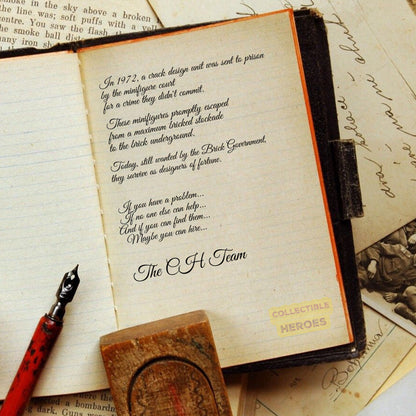 In 1972, a crack design unit was sent to prison
by the minifigure court
for a crime they didn't commit.
These minifigures promptly escaped
from a maximum bricked stockade
to the brick underground.
Today, still wanted by the Brick Government,
they survive as designers of fortune.
If you have a problem...
If no one else can help...
And if you can find them...
Maybe you can hire...
The CH Team
COLLECTIBLE
HEROES